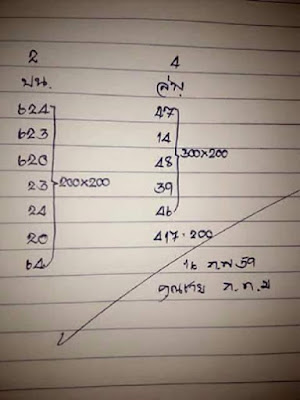 2 4
บน. ล่าง
624 47
623 14
620 48 300x200
23 200x200 39
24 46
20 417-200
64 16 ก.พ 59
คุณชาย ก.ท.ม